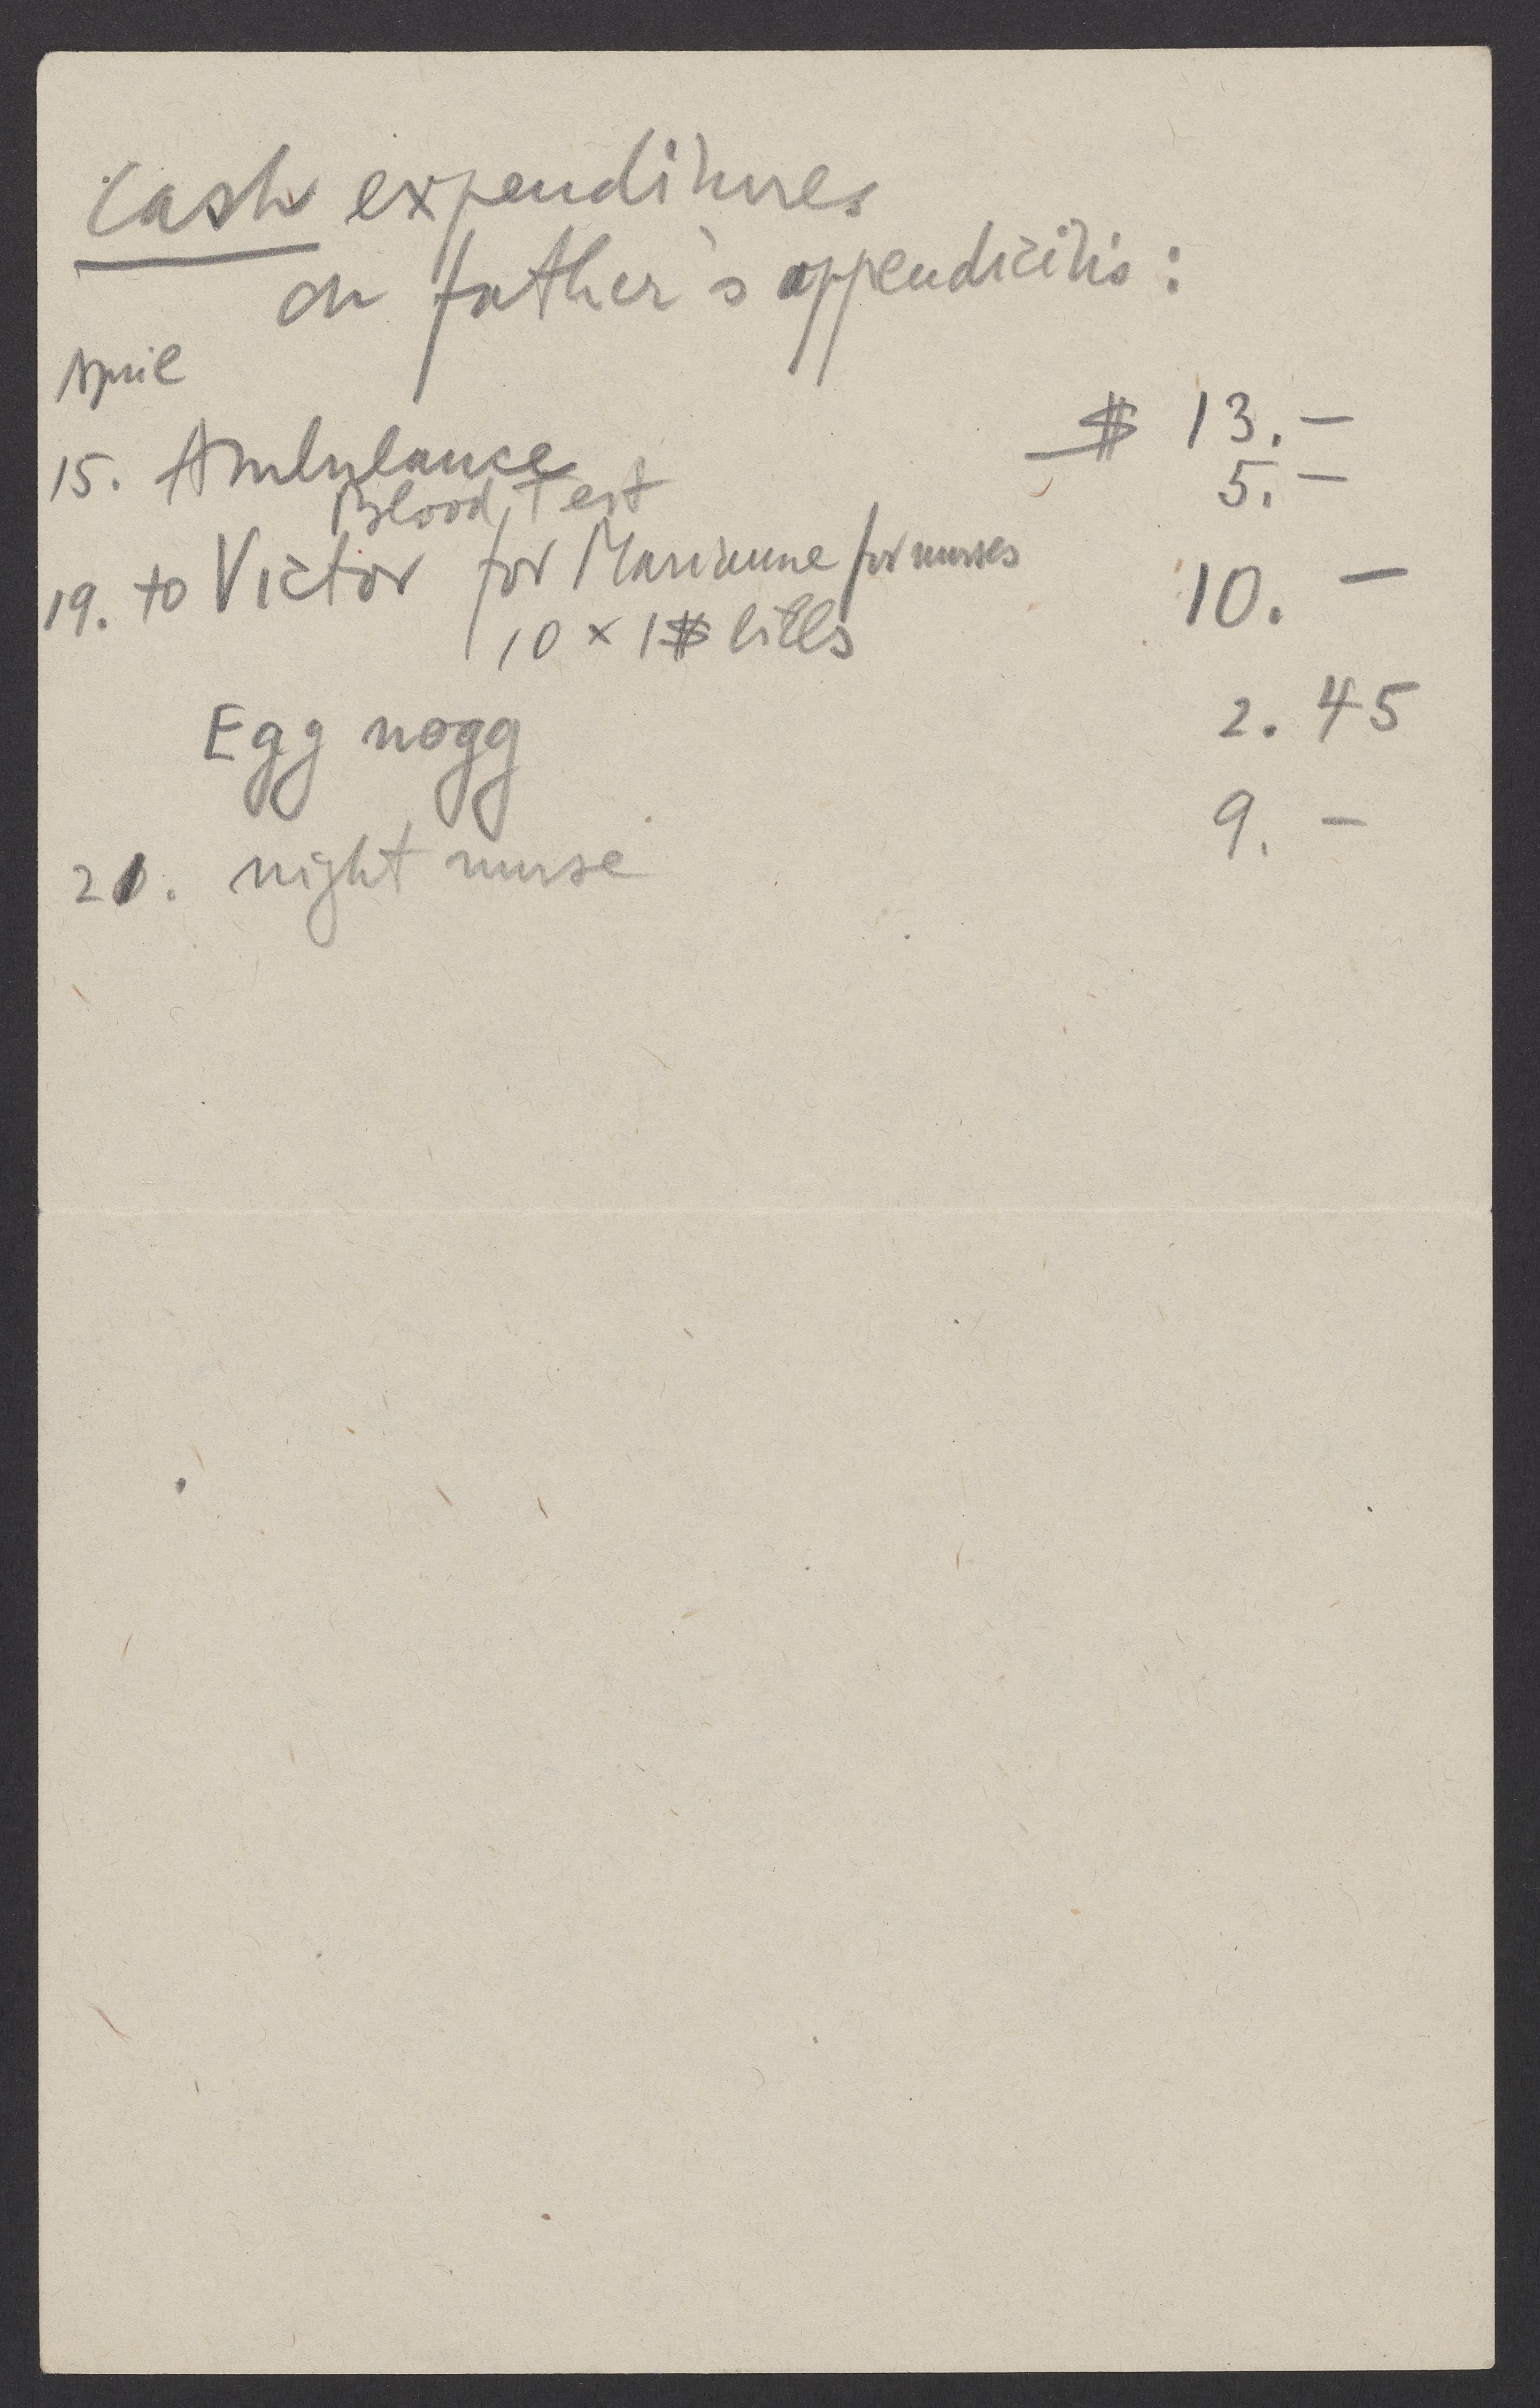 Cash expenditures
on father's appendicitis:
April
15. Ambulance $ 13.—
Blood Test 5.—
19. to Victor for Marianne for nurses 10. —
10 x 1$ bills
Egg nogg 2. 45
21. night nurse 9. —